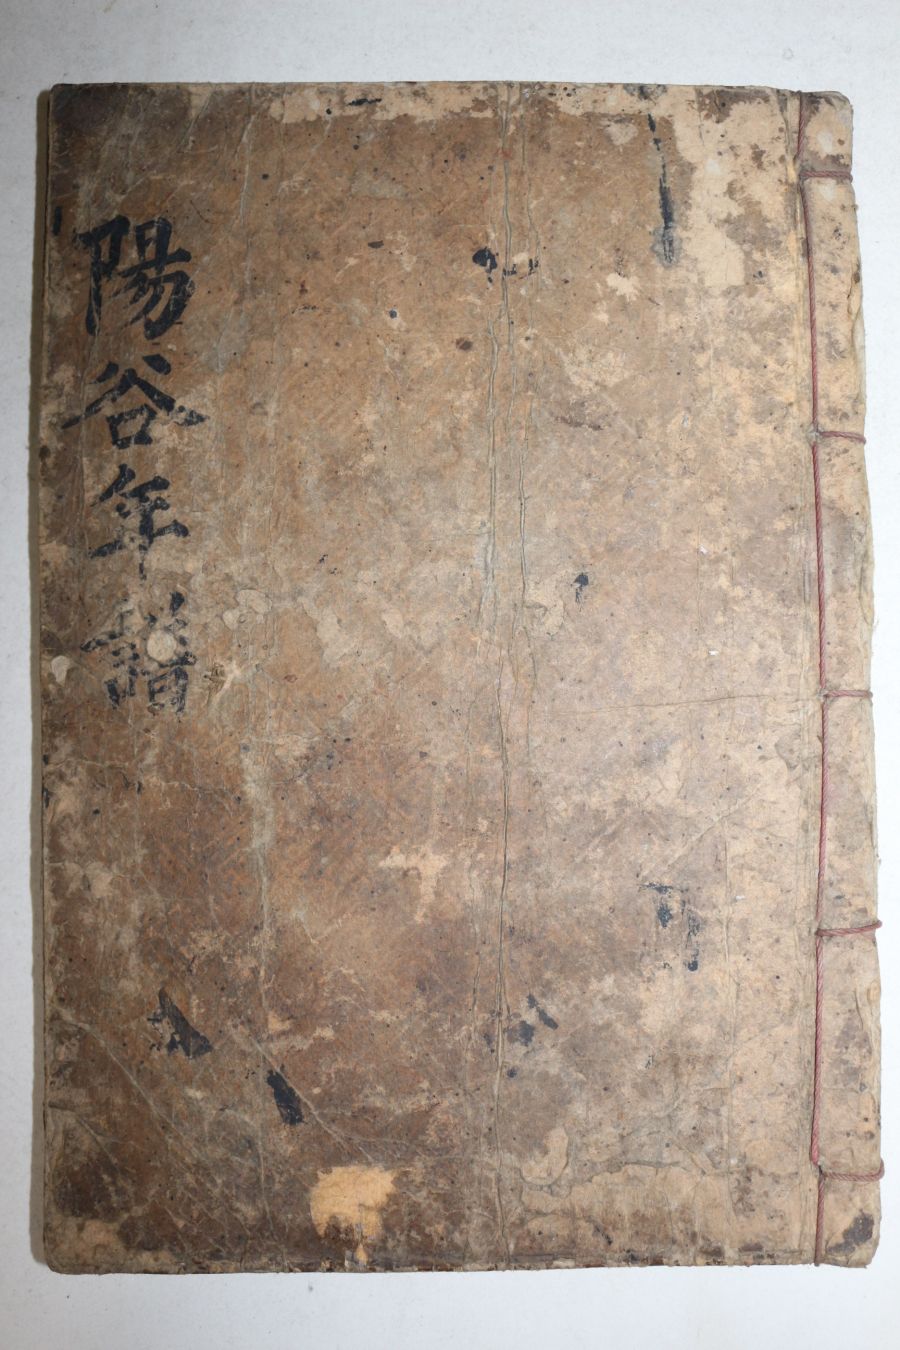 陽谷年譜